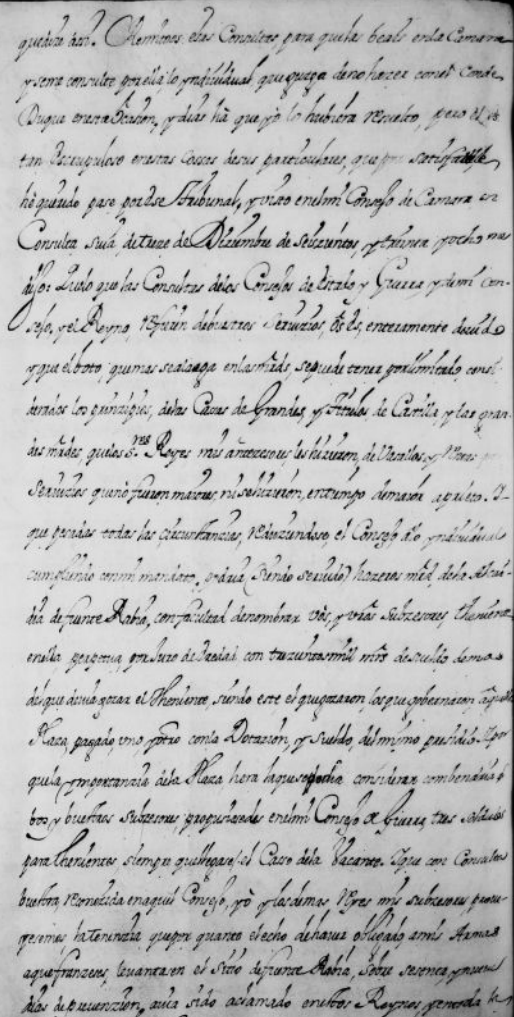 quedara acà. Remitoos esas Consultas, para que las beais en la Camara
y se me consulte por ella lo yndividual, que puega deuo hazer con el Conde
Duque en esta Ocasion, y dias hà que yo lo hubiera resuelto, pero el es
tan escrupuloso en estas cossas de sus particulares, que por satisfaz
hè querido pase por ese Tribunal, y visto en el mi Consejo de Camara en
Consulta suia de treze de Diziembre de seiscientos, y treinta y ocho me
dijo: Que lo que las Consultas de los Consejos de Estado y Guerra, y de mi con-
sejo, y el Reyno, refieren de buestros seruizios, es, enteramente deuido
y que el voto que mas se alarga en las mrds, se puede tener por limitado, consi-
derados los prinzipios, de las Casas de Grandes, y Titulos de Castilla y las gran-
des mrdes, que los Sres Reyes mis antezesores les hizieron, de Vasallos, y Rentas por
seruizios que no fueron maiores, ni se hizieron, en tiempo de maior aprieto. Y
que pesadas todas las zircunstanzias, reduziendose el Consejo à lo yndividual
cumpliendo con mi mandato, podria (siendo seruido) hazeros mrd, de la Alcai-
dia de fuente Rabia, con facultad de nombrar vos, y vros subzesores, theniente
en ella perpetua, por Juro de heredad con trezientos mill mrs de sueldo demas
del que deuia gozar el Theniente, siendo este el que gozaron, los que gobernaron, aquella
Plaza, pagado, uno, y otro con la Dotazion, y sueldo, del mismo presidio. Y por
que la ymportanzia de la Plaza hera la que se podia considerar combendria q
bos, y buestros subzesores, propusiesedes en el mi Consejo de Guerra, tres soldados
para thenientes siempre que llegase el Caso de la Vacante. Y que con Consulta
buestra, remetida en aquel Consejo, yò y los demas Reyes mis subzesores, probe-
yesemos la tenenzia que por quanto el echo de hauer obligado à mis Armas
a que franzeses, leuanta en el sitio de fuente Rabia, sobre sesenta, y nueue
dias de preuenzion, auia sido aclamado en estos Reynos, y en toda la